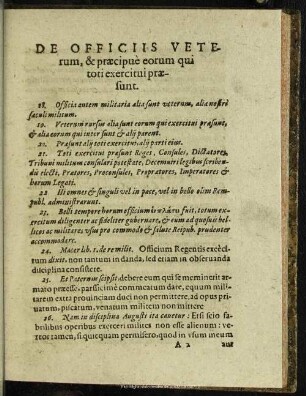 DE OFFICIIS VETE-
rum, & præcipuè eorum qui
toti exercitui præ-
sunt.
18. Officia autem militaria alia sunt veterum, alia nostri
sæculi militum.
19. Veterum rursus alia sunt eorum qui exercitui præsunt,
& alia eorum qui inter sunt & alij parent.
20. Præsunt alij toti exercitui alij parti eius.
21. Toti exercitui præsunt Reges, Consules, Dictatores,
Tribuni militum consulari potestate, Decemuiri legibus scriben-
dis electi, Prætores, Proconsules, Propratores, Imperatores &
horum Legati.
22. Hi omnes & singuli vel in pace, vel in bello olim Rem-
publ. administrarunt.
23. Belli tempore horum officium fuit, totum exer-
citum diligenter ac fideliter gubernare, & eum ad quosuis belli-
cos ac militares vsus pro commodo & salute Reipub. prudenter
accommodare.
24. Macer lib. 1. de re milit. Officium Regentis exerci-
tum dixit, non tantum in danda, sed etiam in obseruanda
disciplina consistere.
25. Et Paternum scipsit, debere eum qui se meminerit ar-
mato præesse, parcissimè commeatum dare, equum mili-
tarem extra prouinciam duci non permittere, ad opus pri-
uatum, piscatum, venatum militem non mittere
26. Nam in disciplina Augusti ita cauetur: Etsi scio fa-
brilibus operibus exerceri milites non esse alienum: ve-
reor tamen, si quicquam permisero, quod in vsum meum
A 2 aut